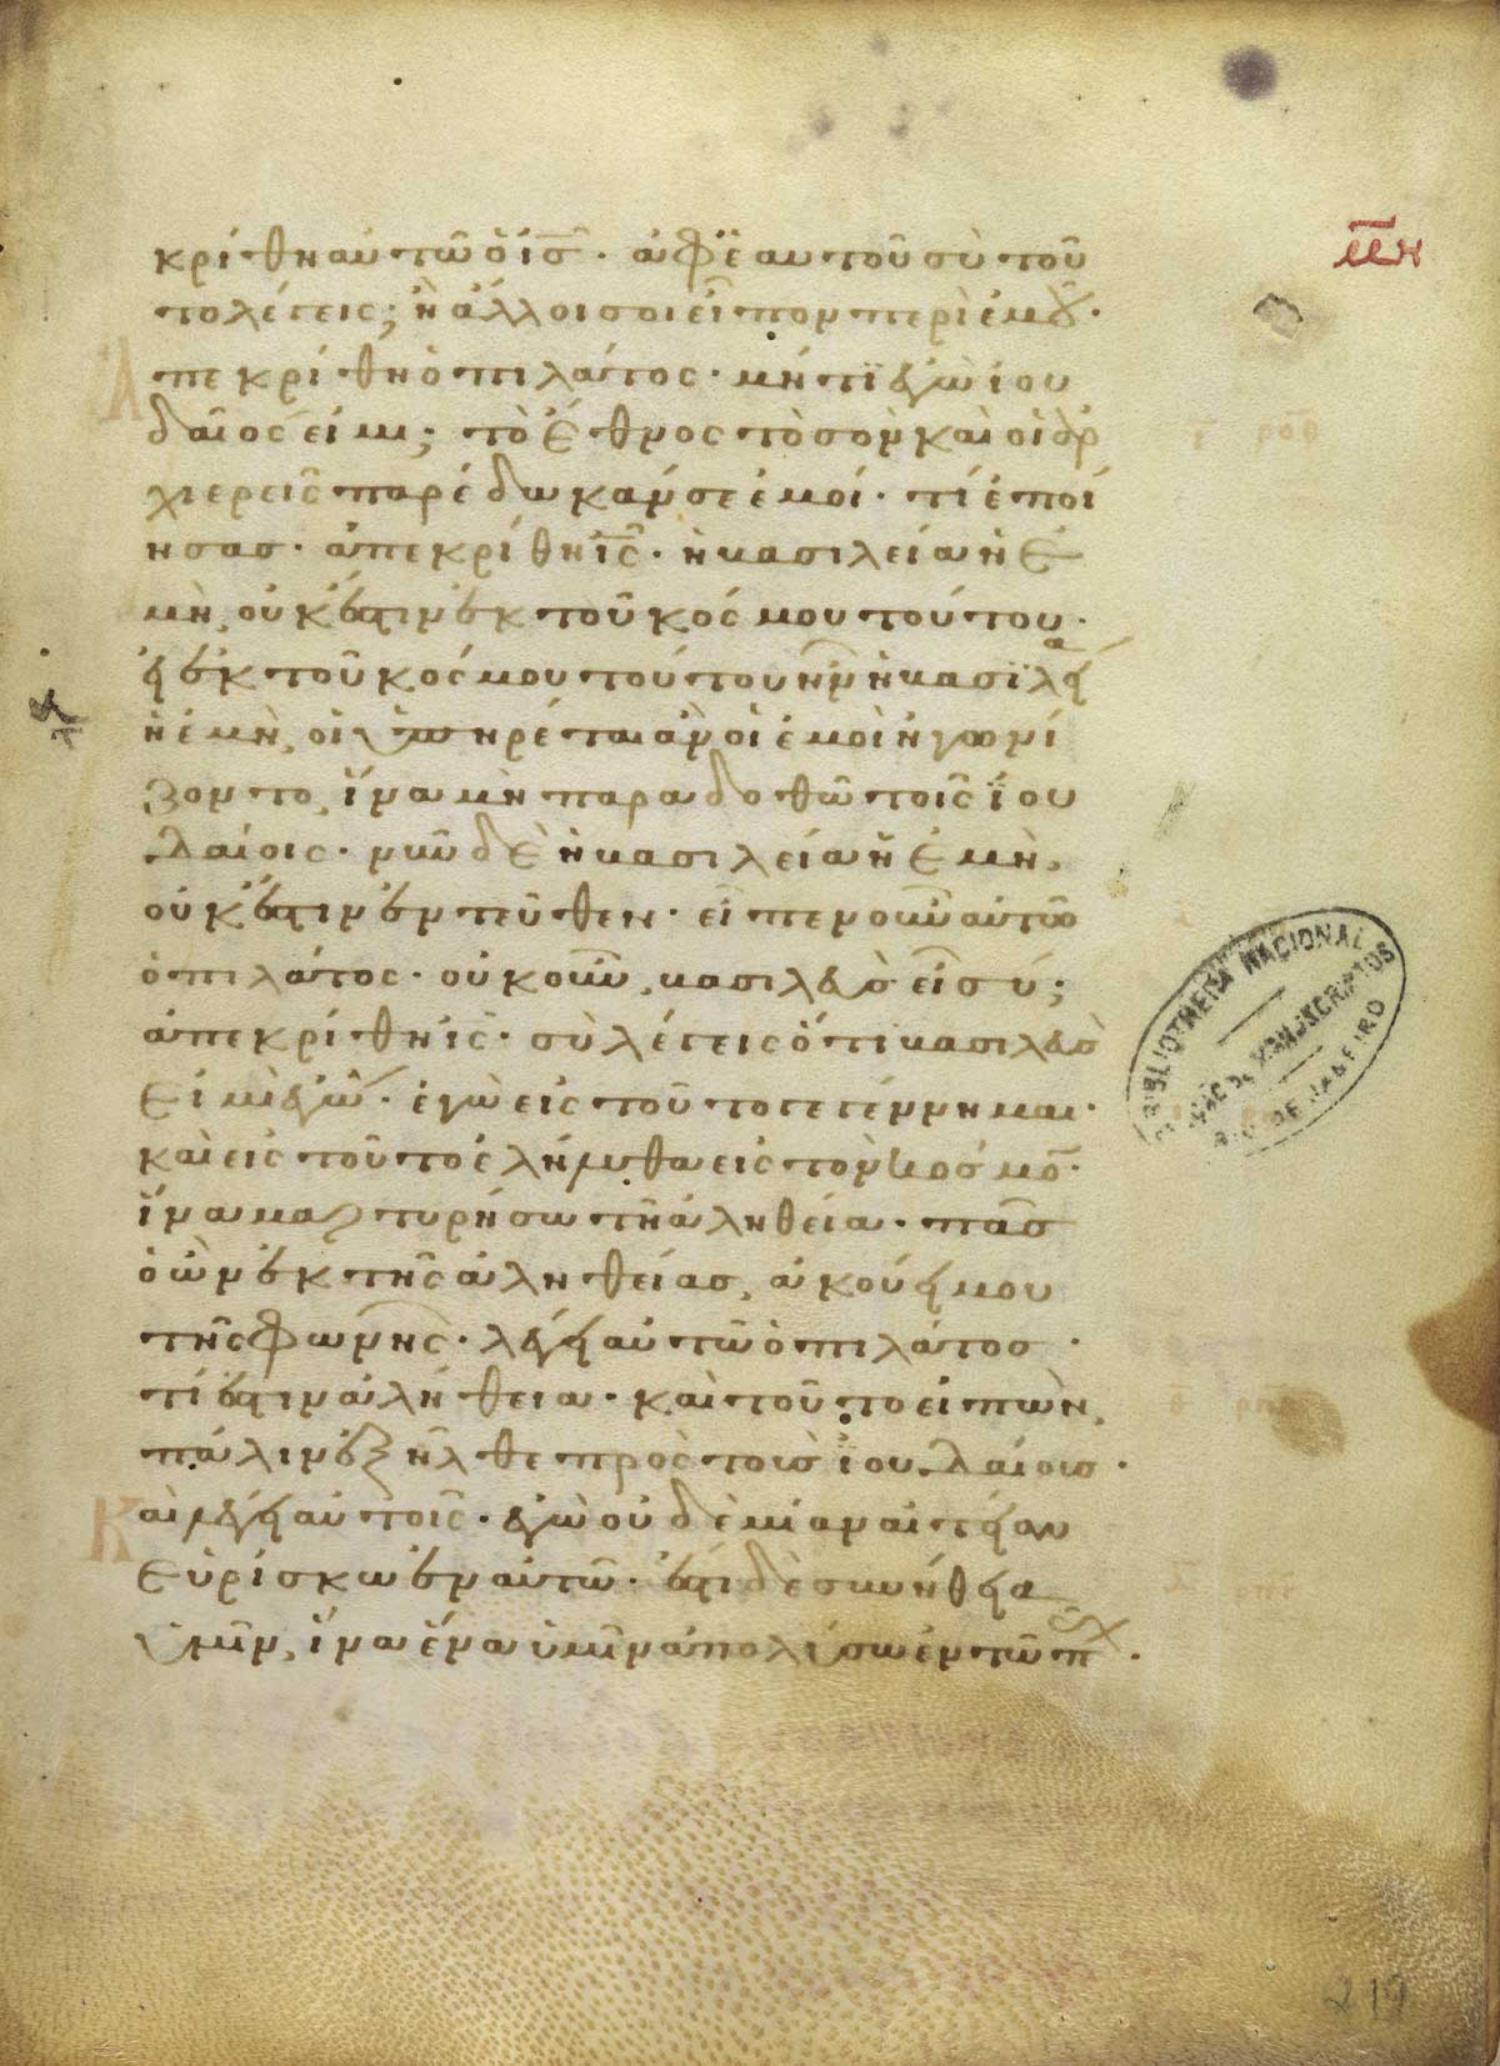 κρίθη αὐτῶ ὁ ις· ἀφ' ἑαυτοῦ σὺ τοῦ
το λέγεις; ἢ ἄλλοι σοι εἶπον περὶ ἐμοῦ·
Α πεκρίθη ὁ πιλάτος· μήτι ἐγὼ ἰου
δαῖος εἰμι; τὸ ἔθνος τὸ σὸν καὶ οἱ ἀρ
χιερεῖς παρέδωκάν σε ἐμοί· τί ἐποί
ησας· ἀπεκρίθη ις· ἡ βασιλεία ἡ ἐ
μὴ, οὐκ ἔστιν ἐκ τοῦ κόσμου τούτου·
εἰ ἐκ τοῦ κόσμου τούτου ἦν ἡ βασιλεία
ἡ ἐμὴ, οἱ ὑπηρέται ἂν οἱ ἐμοὶ ἠγωνί
ζοντο, ἵνα μὴ παραδοθῶ τοῖς ἰου
δαίοις· νῦν δὲ ἡ βασιλεία ἡ ἐμὴ,
οὐκ ἔστιν ἐντεῦθεν· εἶπεν οὖν αὐτῶ
ὁ πιλάτος· οὐκοῦν, βασιλεὺς εἶ σύ;
ἀπεκρίθη ις· σὺ λέγεις ὅτι βασιλεὺς
εἰμὶ ἐγώ· ἐγὼ εἰς τοῦτο γεγέννημαι·
καὶ εἰς τοῦτο ἐλήλυθα εἰς τὸν κόσμον·
ἵνα μαρτυρήσω τῆ ἀληθεία· πᾶς
ὁ ὢν ἐκ τῆς ἀληθείας, ἀκούει μου
τῆς φωνῆς· λέγει αὐτῶ ὁ πιλάτος·
τί ἐστιν ἀλήθεια· καὶ τοῦτο εἰπὼν,
πάλιν ἐξῆλθε πρὸς τοὺς ἰουδαίους·
Κ αὶ λέγει αὐτοῖς· ἐγὼ οὐδεμίαν αἰτίαν
εὑρίσκω ἐν αὐτῶ· ἔστι δὲ συνήθεια
ὑμῖν, ἵνα ἕνα ὑμῖν ἀπολύσω ἐν τῶ πάσχα·
BIBLIOTHECA NACIONAL
MANUSCRIPTOS
RIO DE JANEIRO
219